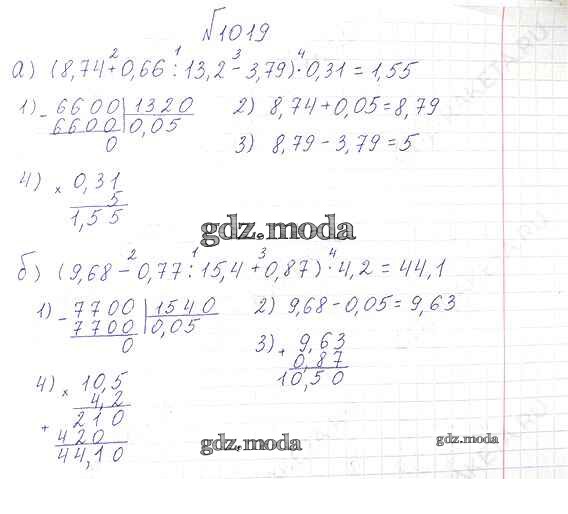 №1019
2 1 3 4
а) (8,74+0,66:13,2-3,79)·0,31=1,55
1) - 6600 | 1320 2) 8,74+0,05=8,79
6600 | 0,05
0 3) 8,79-3,79=5
4) × 0,31
5
1,55
gdz.moda
2 1 3 4
б) (9,68-0,77:15,4+0,87)·4,2=44,1
1) - 7700 | 1540 2) 9,68-0,05=9,63
7700 | 0,05
0 3) + 9,63
0,87
10,50
4) × 10,5
4,2
+ 210
420
44,10
gdz.moda
gdz.moda